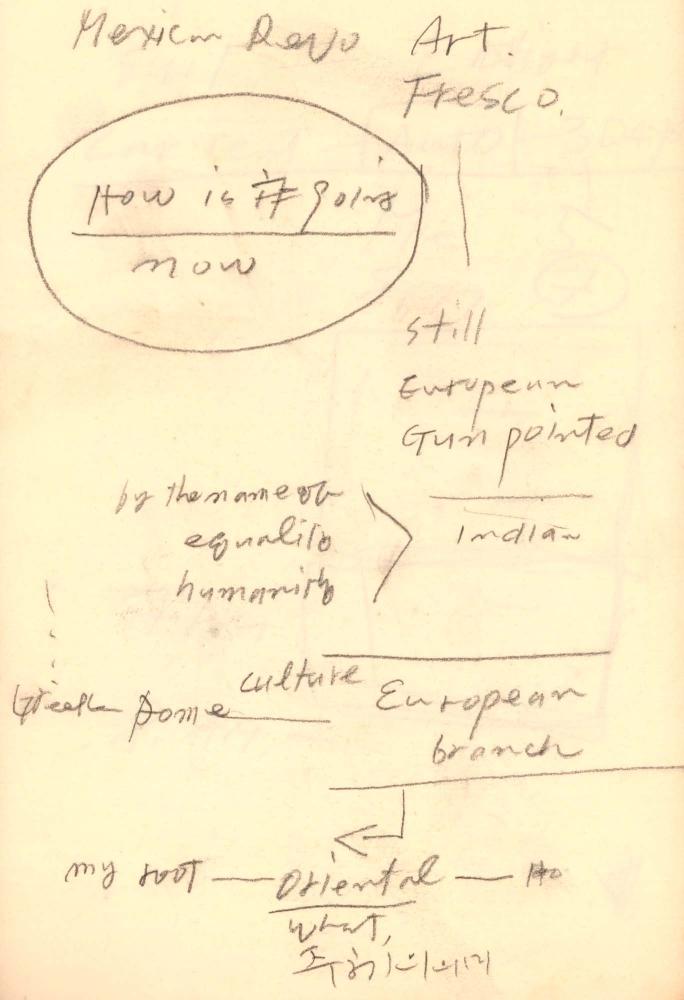 Mexican Revo Art.
Fresco.
How is it going
now
still
European
Gun pointed
by the name of
equality
humanity
Indian
culture
European
branch
Greek Rome
my root — Oriental — Ho
what,